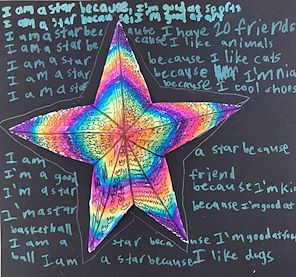 I am a star because, I'm good at sports
I am a star because, I'm good at art
I am a star because I have 20 friends
I am a star because I like animals
I am a star because I like cats
I am a star because I'm nice
I am a star because I cool shoes
I am a star because
I'm a good friend
I'm a star because I'm kind
I'm a star because I'm good at
basketball
I am a star because I'm good at
ball I am a star because I like dogs